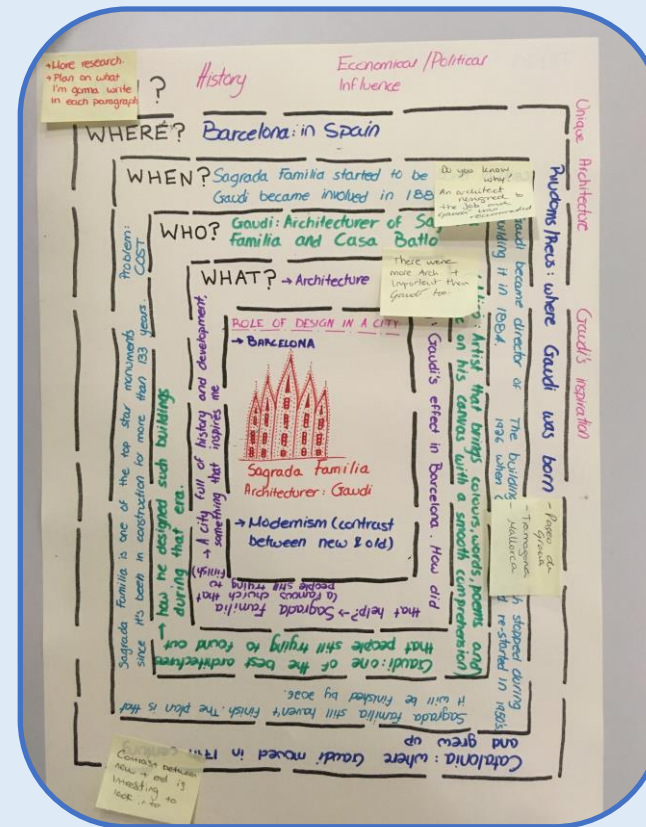 → More research.
→ Plan on what
I'm gonna write
in each paragraph
?
History
Economical/Political
Influence
Unique Architecture
Gaudi's inspiration
WHERE? Barcelona: in Spain
Riudoms/Reus: where Gaudi was born
and grew up
Catalonia: where Gaudi moved in
WHEN? Sagrada Familia started to be
Gaudi became involved in 188
Gaudi became director of
building it in 1884.
The building
1926 when
stopped during
re-started in 1950's
Sagrada familia still haven't finish. The plan is that
it will be finished by 2026.
Sagrada Familia is one of the top star monuments
since it's been in construction for more than 133 years.
Problem:
COST
Do you know
why?
An architect
resigned to
the job and
Gaudi was
recommended
WHO? Gaudi: Architecturer of Sag
Familia and Casa Batlo
: Artist that brings colours, words, poems and
on his canvas with a smooth comprehension
Gaudi: one of the best architectures
that people still trying to found out
→ how he designed such buildings
during that era.
There were
more Arch. +
important then
Gaudi too.
WHAT? → Architecture
: Gaudi's effect in Barcelona. How did
that help? → Sagrada Familia
(a famous church that
people still trying to
finish)
→ A city full of history and development,
something that inspires me
ROLE OF DESIGN IN A CITY
→ BARCELONA
Sagrada Familia
Architecturer: Gaudi
→ Modernism (contrast
between new & old)
- Paseo de
Gracia
- Tarragona
- Mallorca
Contrast between
new + old is
interesting to
look into